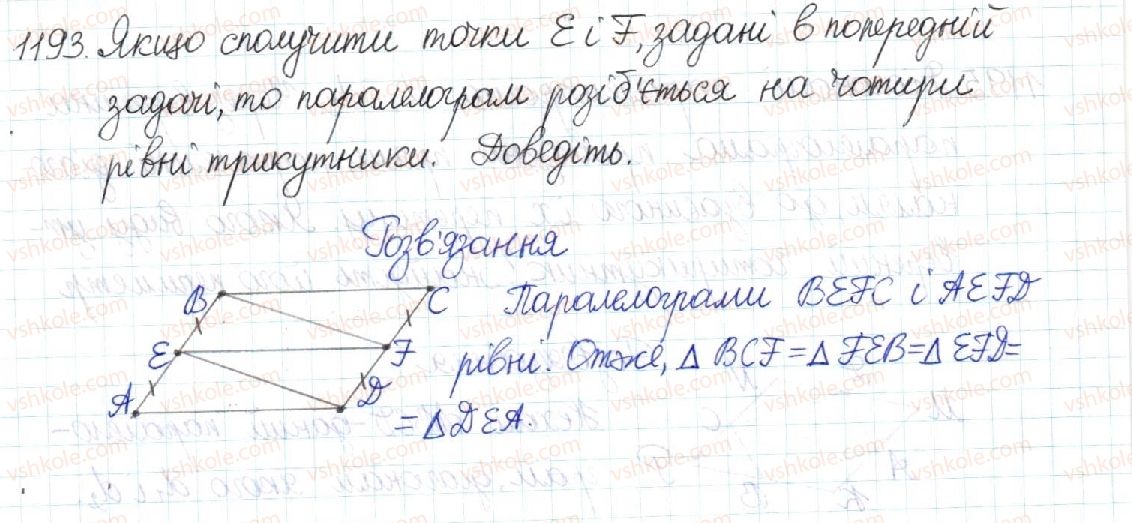 1193. Якщо сполучити точки E і F, задані в попередній
задачі, то паралелограм розіб'ється на чотири
рівні трикутники. Доведіть.
Розв'язання
B C Паралелограми BEFC і AEFD
E F рівні. Отже, △ BCF = △ FEB = △ EFD =
A D = △ DEA.